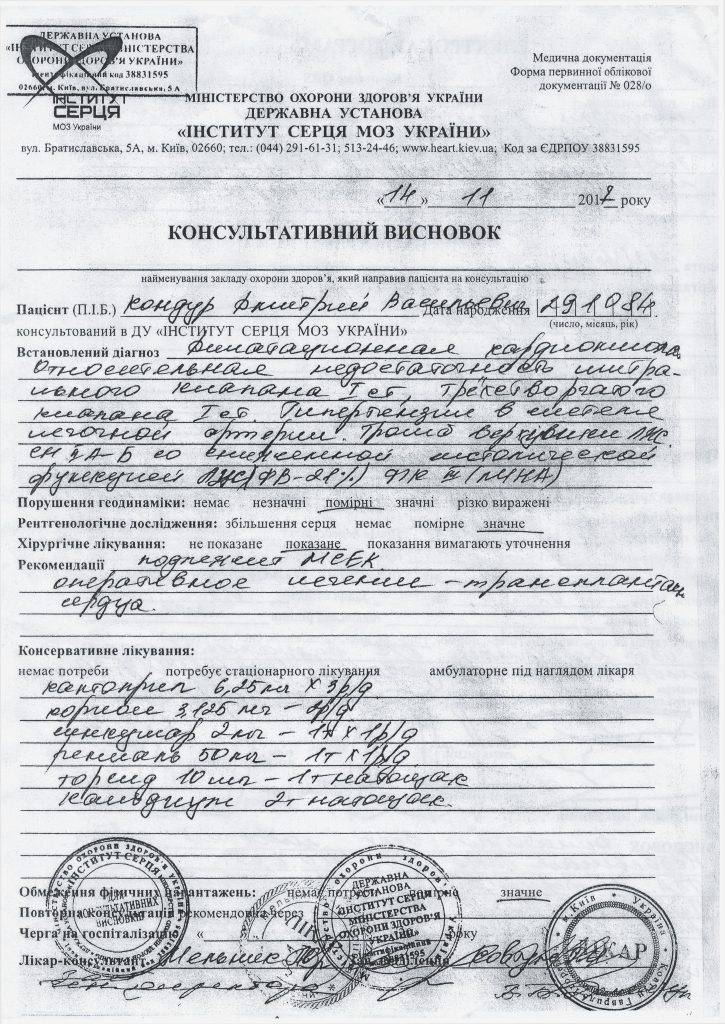 ДЕРЖАВНА УСТАНОВА
«ІНСТИТУТ СЕРЦЯ МІНІСТЕРСТВА
ОХОРОНИ ЗДОРОВ'Я УКРАЇНИ»
ідентифікаційний код 38831595
02660, м. Київ, вул. Братиславська, 5 А
ІНСТИТУТ
СЕРЦЯ
МОЗ України
Медична документація
Форма первинної облікової
документації № 028/о
МІНІСТЕРСТВО ОХОРОНИ ЗДОРОВ'Я УКРАЇНИ
ДЕРЖАВНА УСТАНОВА
«ІНСТИТУТ СЕРЦЯ МОЗ УКРАЇНИ»
вул. Братиславська, 5А, м. Київ, 02660; тел.: (044) 291-61-31; 513-24-46; www.heart.kiev.ua; Код за ЄДРПОУ 38831595
«14» 11 2017 року
КОНСУЛЬТАТИВНИЙ ВИСНОВОК
найменування закладу охорони здоров'я, який направив пацієнта на консультацію
Пацієнт (П.І.Б.) Кондур Дмитрий Васильевич Дата народження 291084
(число, місяць, рік)
консультований в ДУ «ІНСТИТУТ СЕРЦЯ МОЗ УКРАЇНИ»
Встановлений діагноз Дилатационная кардиомиопа.
Относительная недостаточность митра-
льного клапана I ст, трёхстворчатого
клапана I ст. Гипертензия в системе
легочной артерии. Тромб верхушки ЛЖ.
СН А-Б со сниженной систолической
функцией ЛЖ (ФВ-21%) ФК (NYHA)
Порушення геодинаміки: немає незначні помірні значні різко виражені
Рентгенологічне дослідження: збільшення серця немає помірне значне
Хірургічне лікування: не показане показане показання вимагають уточнення
Рекомендації подлежит МСЕК.
оперативное лечение - трансплантац
сердца.
Консервативне лікування:
немає потреби потребує стаціонарного лікування амбулаторне під наглядом лікаря
каптоприл 6,25 мг х 3 р/д
3,125 мг - р/д
синкумар 2 мг - 1т х 1 р/д
50 мг - 1т х 1 р/д
торсид 10 мг - 1т натощак
2т натощак.
Обмеження фізичних навантажень: немає потреби помірне значне
Повторна консультація рекомендовна через
Черга на госпіталізацію « року
Лікар-консультант Мельник відділення
Ген директора
ІНСТИТУТ СЕРЦЯ
ДЛЯ
КОНСУЛЬТАТИВНИХ
ВИСНОВКІВ
ДЕРЖАВНА
УСТАНОВА
«ІНСТИТУТ СЕРЦЯ
МІНІСТЕРСТВА
ОХОРОНИ ЗДОРОВ'Я
УКРАЇНИ»
ідентифікаційний
код 38831595
ЛІКАР
м.Київ Україна
ЛІКАР